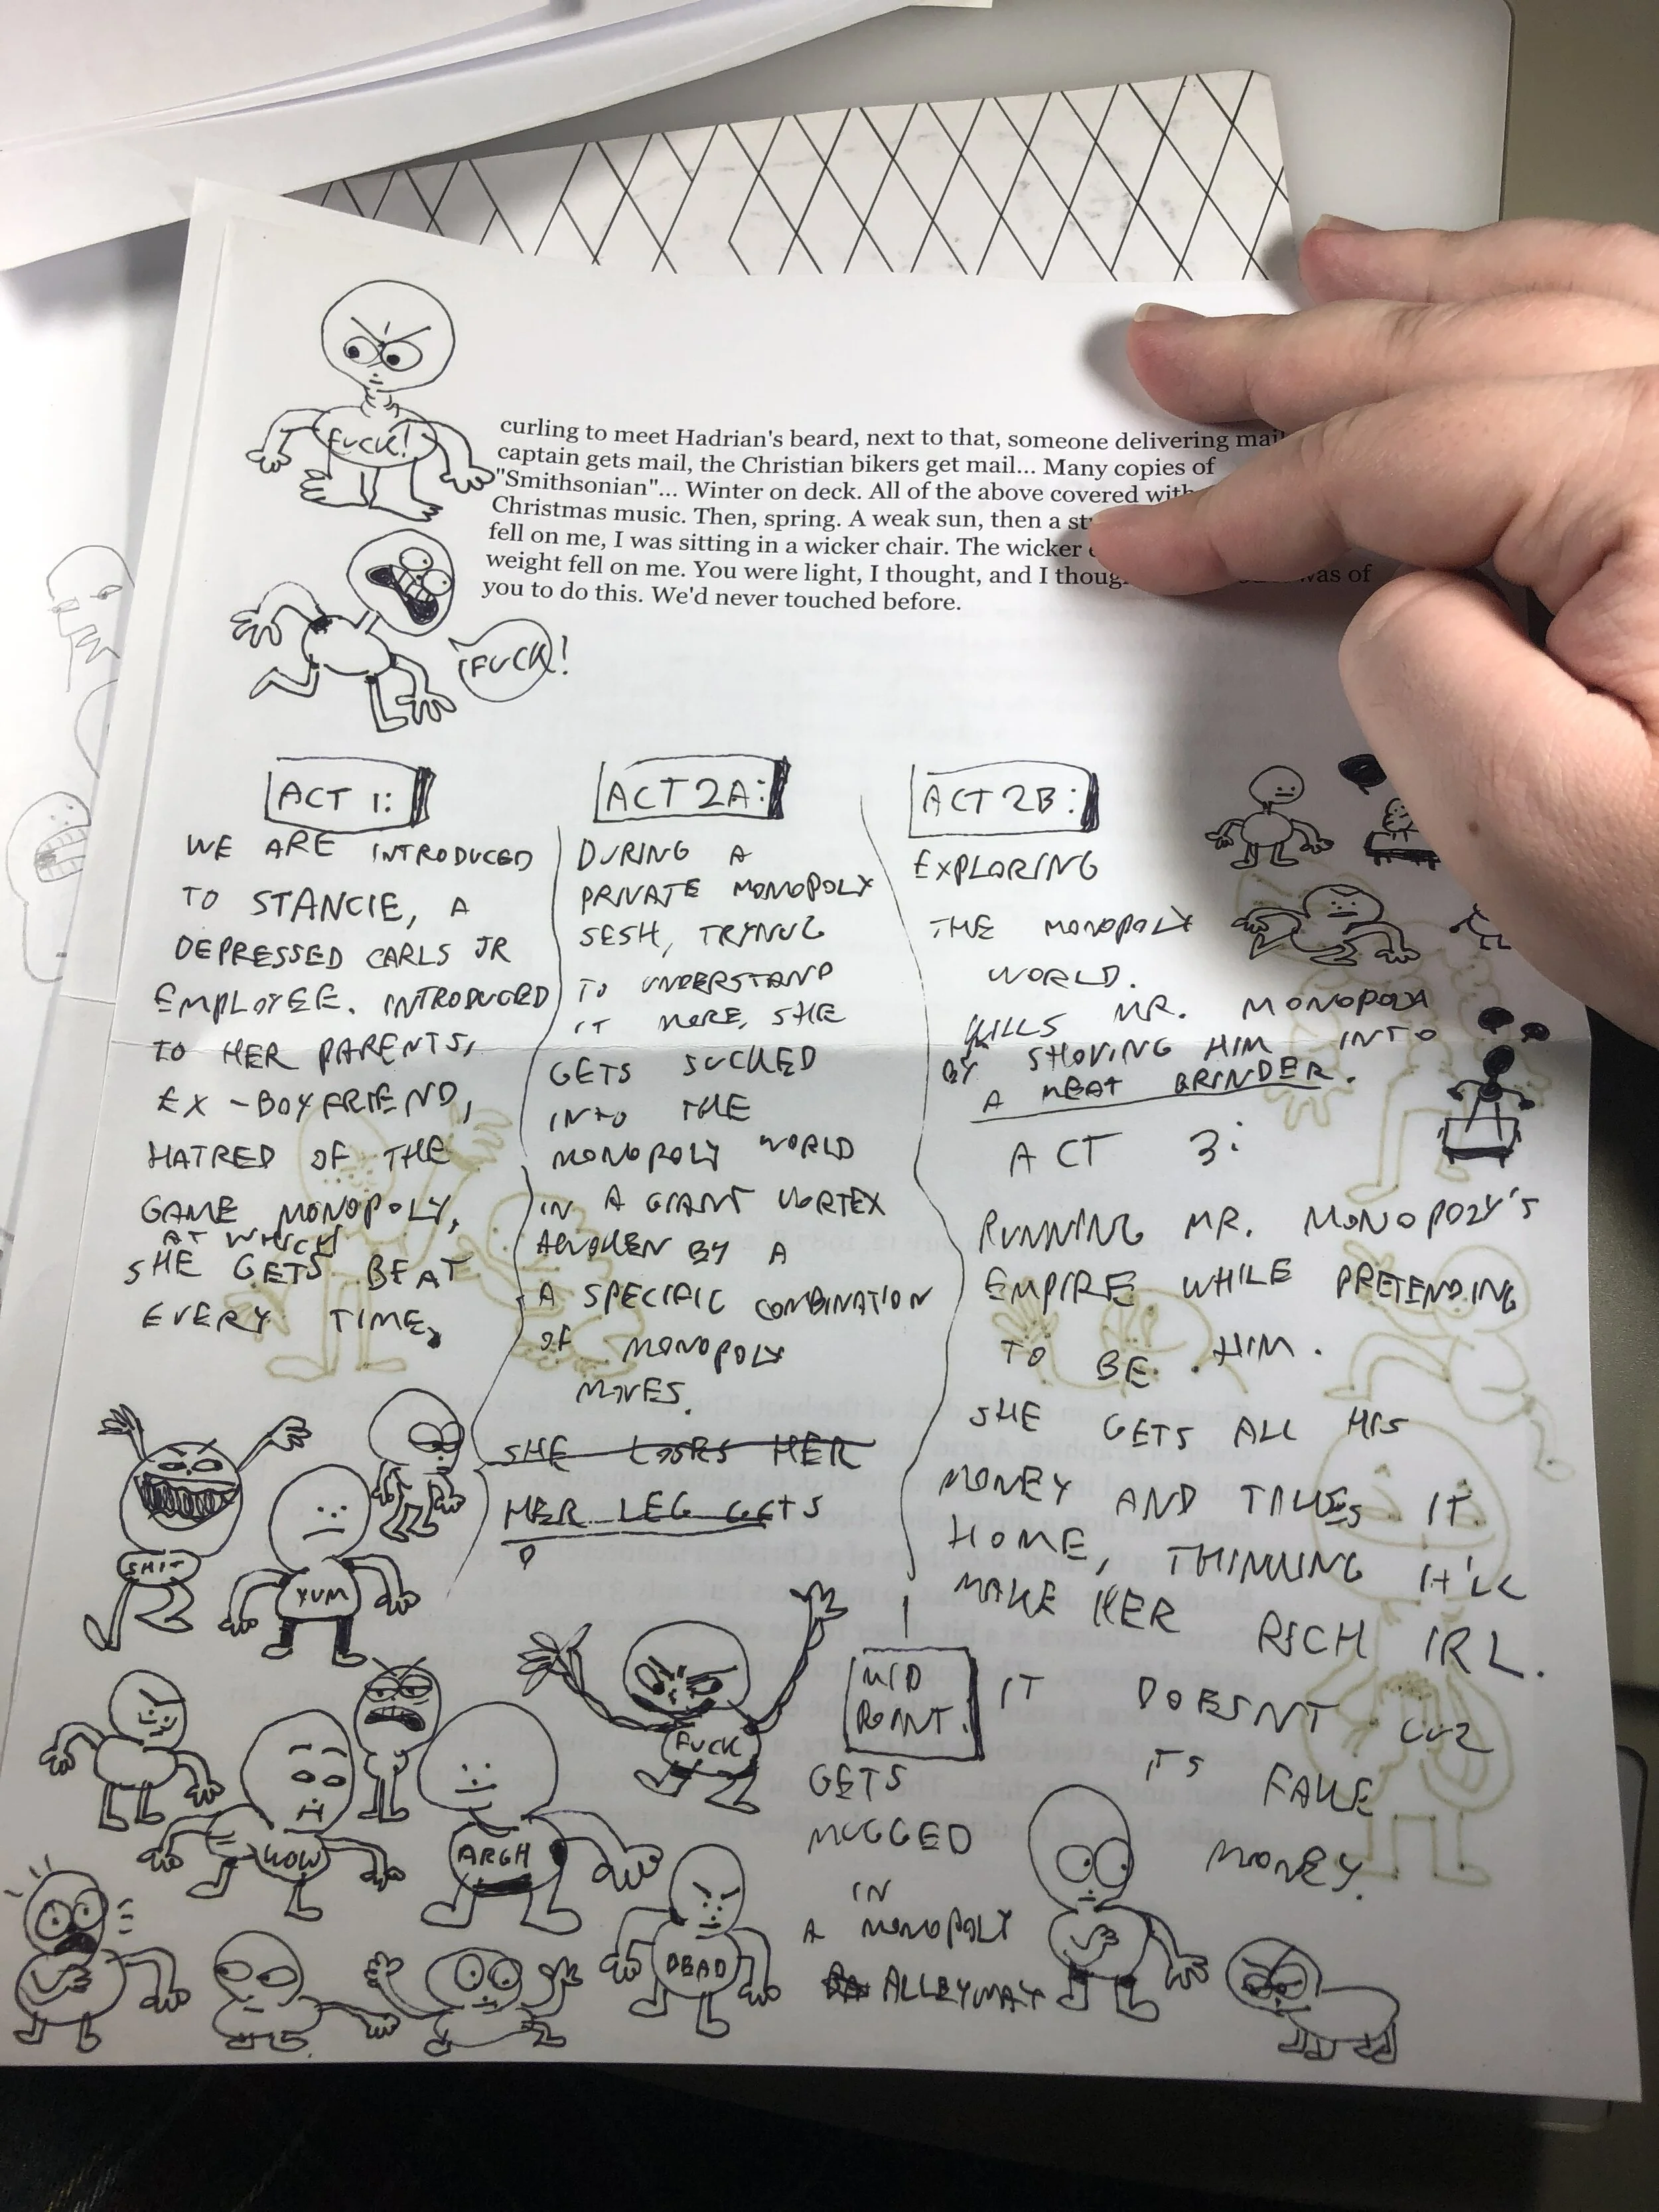 FUCK!
curling to meet Hadrian's beard, next to that, someone delivering mail
captain gets mail, the Christian bikers get mail... Many copies of
"Smithsonian"... Winter on deck. All of the above covered with
Christmas music. Then, spring. A weak sun, then a
fell on me, I was sitting in a wicker chair. The wicker
weight fell on me. You were light, I thought, and I was of
you to do this. We'd never touched before.
FUCK!
ACT 1:
WE ARE INTRODUCED
TO STANCIE, A
DEPRESSED CARLS JR
EMPLOYEE. INTRODUCED
TO HER PARENTS,
EX-BOYFRIEND,
HATRED OF THE
GAME MONOPOLY,
AT WHICH
SHE GETS BEAT
EVERY TIME.
ACT 2A:
DURING A
PRIVATE MONOPOLY
SESH, TRYNUG
TO UNDERSTAND
IT MORE, SHE
GETS SUCKED
INTO THE
MONOPOLY WORLD
IN A GIANT VORTEX
AWOKEN BY A
A SPECIFIC COMBINATION
OF MONOPOLY
MOVES.
SHE LOOKS HER
HER LEG GETS
MID
POINT.
GETS
MUGGED
IN
A MONOPOLY
ALLEYWAY
ACT 2B:
EXPLORING
THE MONOPOLY
WORLD.
KILLS MR. MONOPOLY
BY SHOVING HIM INTO
A MEAT GRINDER.
ACT 3:
RUNNING MR. MONOPOLY'S
EMPIRE WHILE PRETENDING
TO BE HIM.
SHE GETS ALL HIS
MONEY AND TAKES IT
HOME, THINKING IT'LL
MAKE HER RICH IRL.
IT DOESNT CUZ
ITS FAKE
MONEY.
SHIT
YUM
FUCK
WOW
ARGH
DEAD